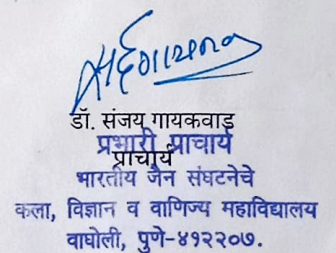 डॉ. संजय गायकवाड
प्रभारी प्राचार्य
प्राचार्य
भारतीय जैन संघटनेचे
कला, विज्ञान व वाणिज्य महाविद्यालय
वाघोली, पुणे-४१२२०७.